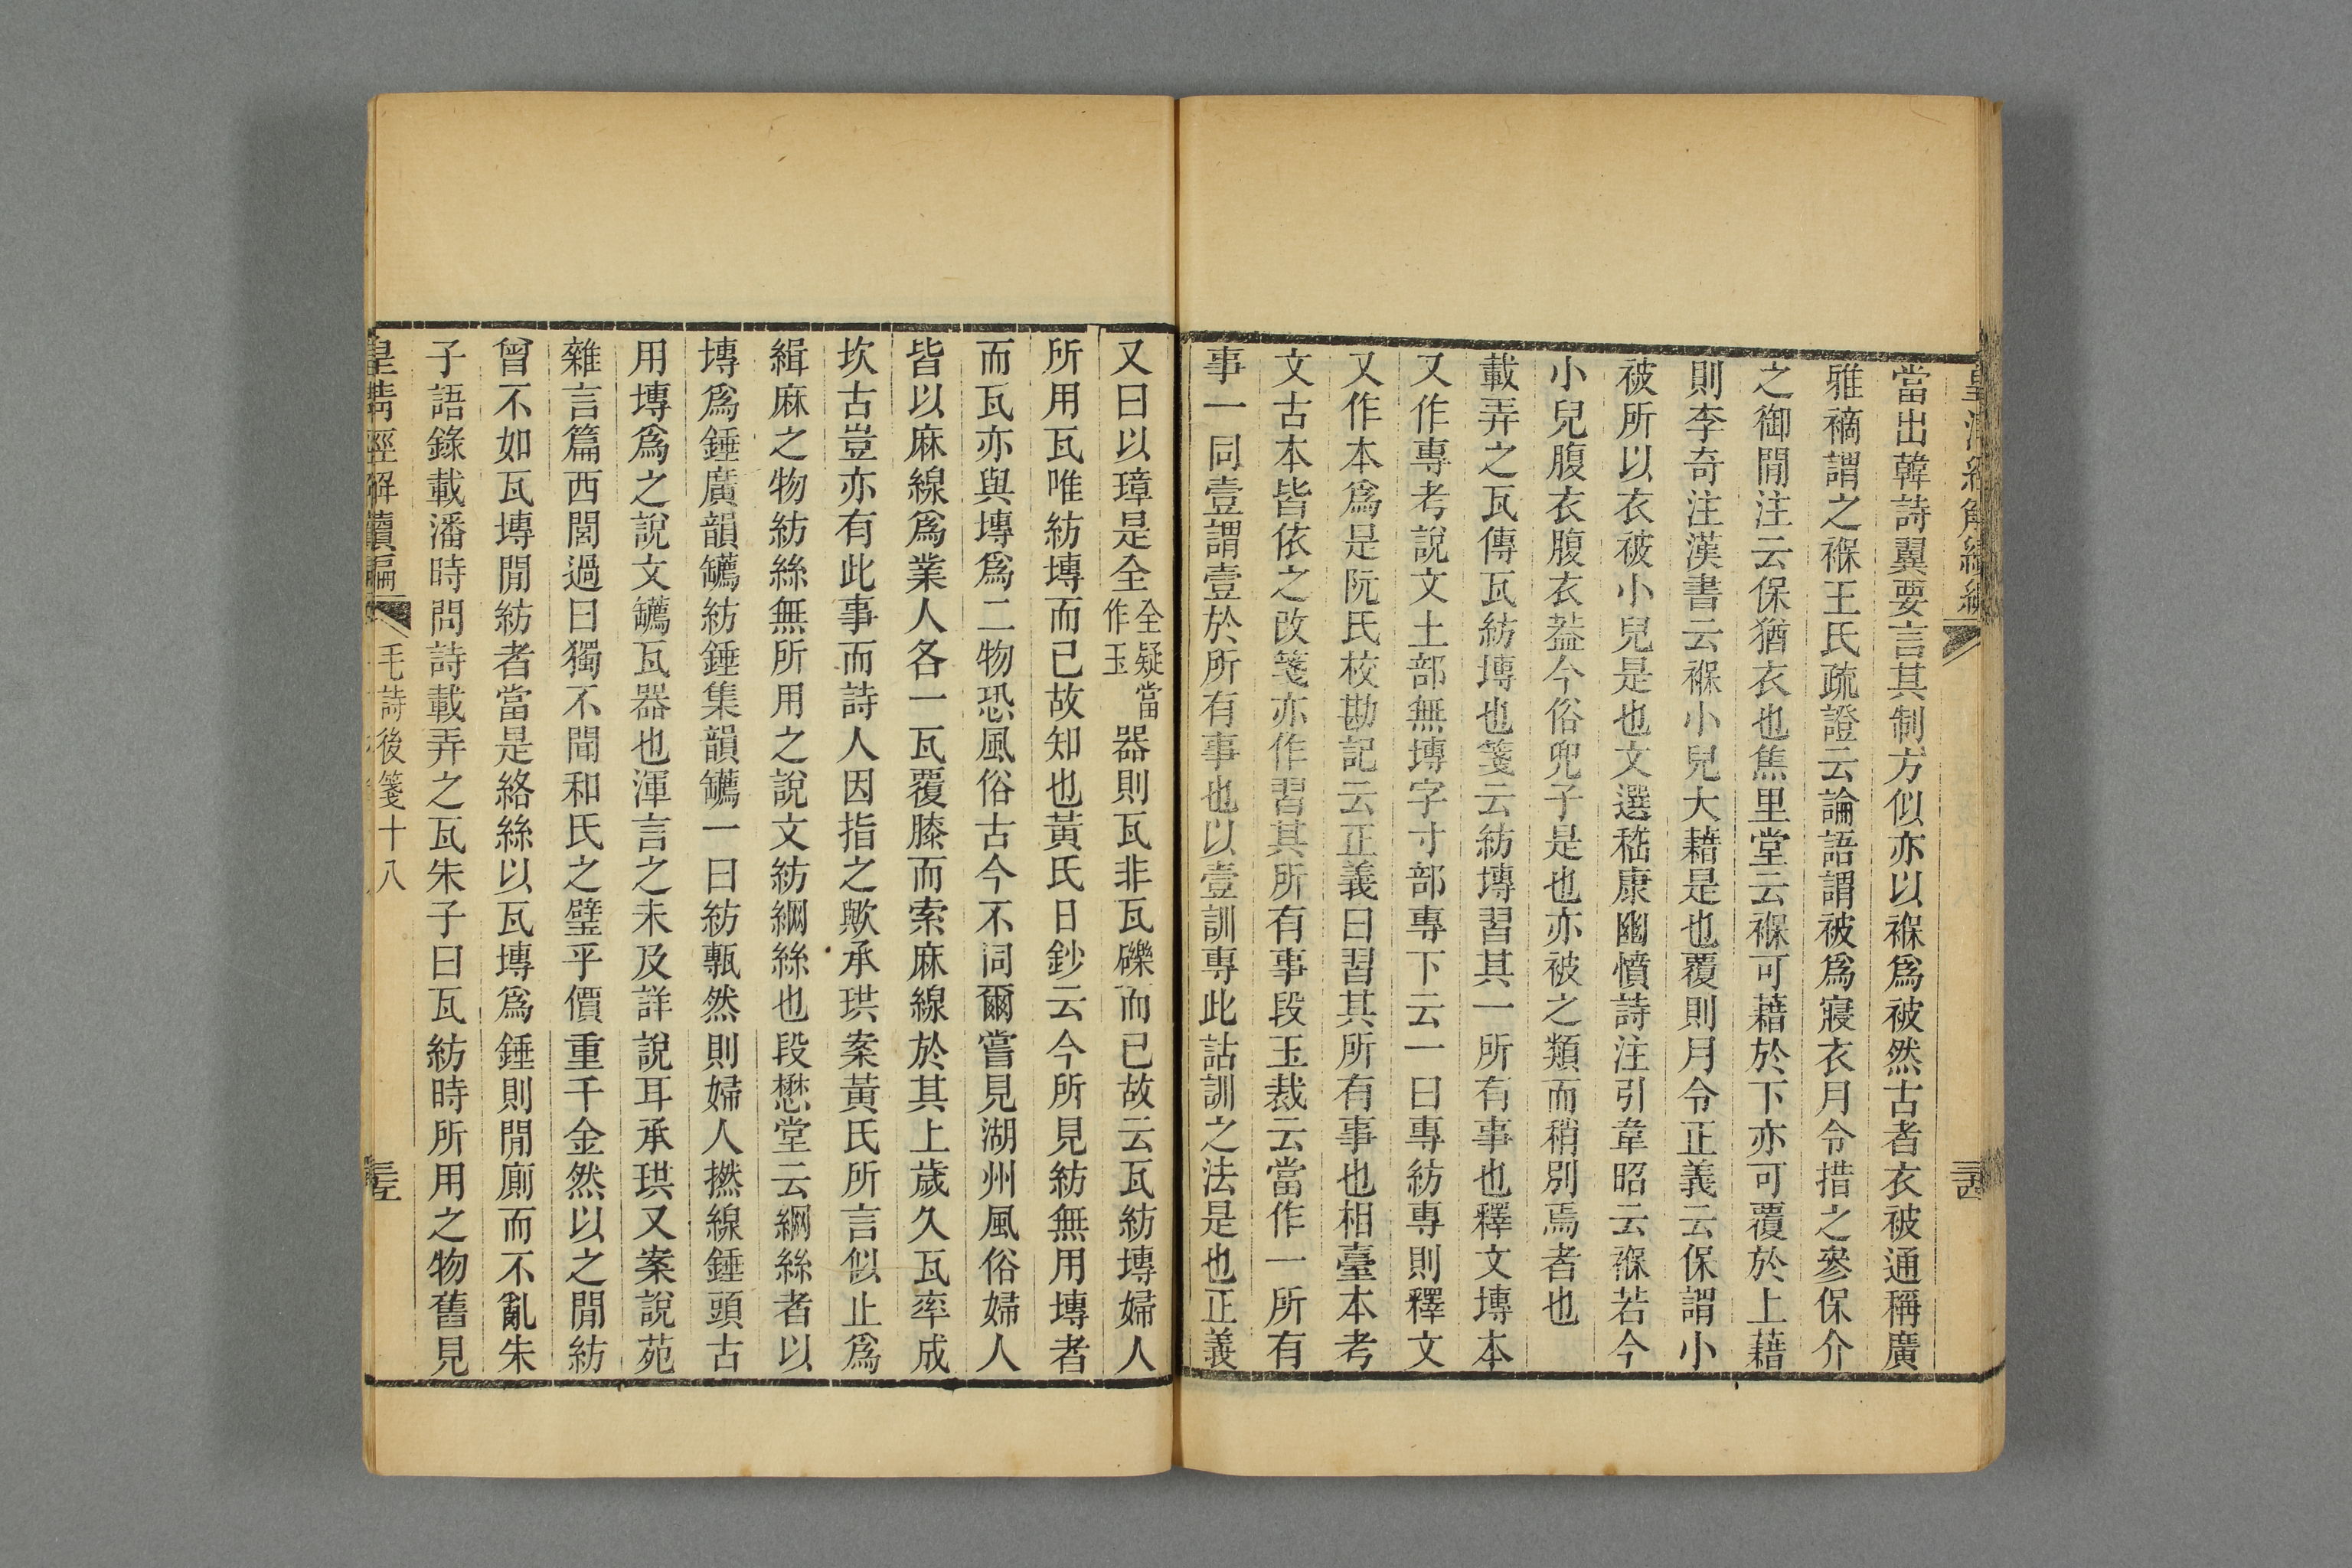 當出韓詩翼要言其制方似亦以褓爲被然古者衣被通稱廣
雅褯謂之褓王氏疏證云論語謂被爲寢衣月令措之參保介
之御閒注云保猶衣也焦里堂云褓可藉於下亦可覆於上藉
則李奇注漢書云褓小兒大藉是也覆則月令正義云保謂小
被所以衣被小兒是也文選嵇康幽憤詩注引韋昭云褓若今
小兒腹衣腹衣葢今俗兜子是也亦被之類而稍別焉者也
載弄之瓦傳瓦紡塼也箋云紡塼習其一所有事也釋文塼本
又作專考說文土部無塼字寸部專下云一曰專紡專則釋文
又作本爲是阮氏校勘記云正義曰習其所有事也相臺本考
文古本皆依之改箋亦作習其所有事段玉裁云當作一所有
事一同壹謂壹於所有事也以壹訓專此詁訓之法是也正義
又曰以璋是全全疑當作玉器則瓦非瓦礫而已故云瓦紡塼婦人
所用瓦唯紡塼而已故知也黃氏日鈔云今所見紡無用塼者
而瓦亦與塼爲二物恐風俗古今不同爾嘗見湖州風俗婦人
皆以麻線爲業人各一瓦覆膝而索麻線於其上歲久瓦率成
坎古豈亦有此事而詩人因指之歟承珙案黃氏所言似止爲
緝麻之物紡絲無所用之說文紡網絲也段懋堂云網絲者以
塼爲錘廣韻䥯紡錘集韻䥯一曰紡甎然則婦人撚線錘頭古
用塼爲之說文䥯瓦器也渾言之未及詳說耳承珙又案說苑
雜言篇西閭過曰獨不聞和氏之璧乎價重千金然以之閒紡
曾不如瓦塼閒紡者當是絡絲以瓦塼爲錘則閒廁而不亂朱
子語錄載潘時問詩載弄之瓦朱子曰瓦紡時所用之物舊見
皇淸經解續編 毛詩後箋十八 三五